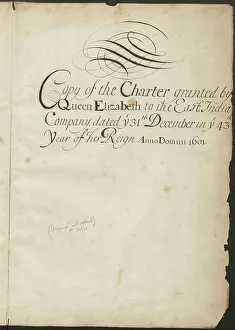 Copy of the Charter granted by
Queen Elizabeth to the East India
Company, dated ye 31th December in ye 43d
Year of her Reign. Anno Domini 1601.